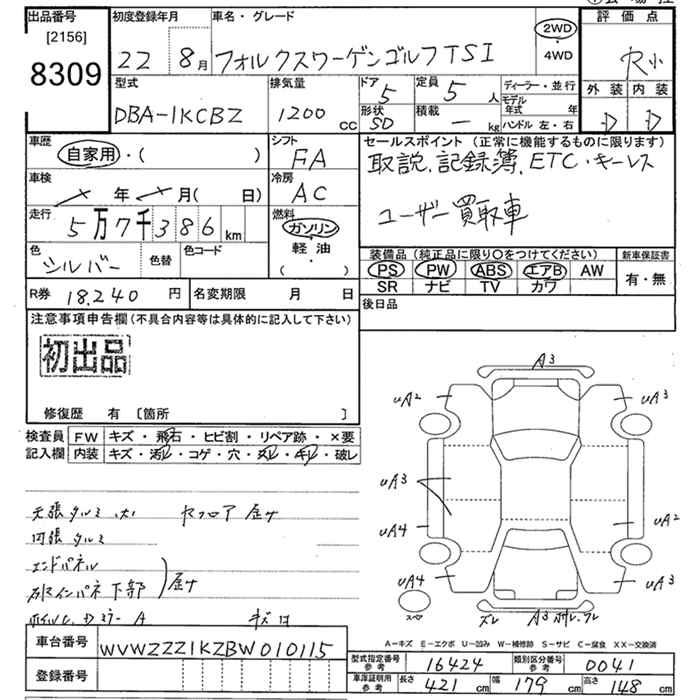 出品番号 [2156] 8309
初度登録年月 22 8月
車名・グレード フォルクスワーゲンゴルフTSI
2WD・4WD
評価点
外装 内装
D D
型式 DBA-1KCBZ
排気量 1200 CC
ドア 5
形状 SD
定員 5人
積載 — kg
ディーラー・並行
モデル年式 年
ハンドル 左・右
車歴 自家用・( )
車検 年 月( 日)
走行 5万7千386km
色 シルバー 色替 色コード
シフト FA
冷房 AC
燃料 ガソリン・軽油 ( )
セールスポイント (正常に機能するものに限ります)
取説、記録簿、ETC・キーレス
ユーザー買取車
装備品 (純正品に限り○をつけてください)
PS PW ABS エアB AW
SR ナビ TV カワ
新車保証書
有・無
R券 18,240円
名変期限 月 日
後日品
注意事項申告欄(不具合内容等は具体的に記入して下さい)
初出品
修復歴 有 [箇所 ]
検査員記入欄
FW キズ・飛石・ヒビ割・リペア跡・×要
内装 キズ・汚レ・コゲ・穴・スレ・チレ・破レ
天張タルミ 大
内張タルミ
エンドパネル
下部
A
キズ
A3
uA2
uA3
uA3
uA4
uA2
uA4
uA3
スペア
ズレ
A3
A-キズ E-エクボ U-凹み W-補修跡 S-サビ C-腐食 XX-交換済
車台番号 WVWZZZ1KZBW010115
登録番号
型式指定番号 参考 16424
類別区分番号 参考 0041
車庫証明用 参考 長さ 421cm 幅 179cm 高さ 148cm